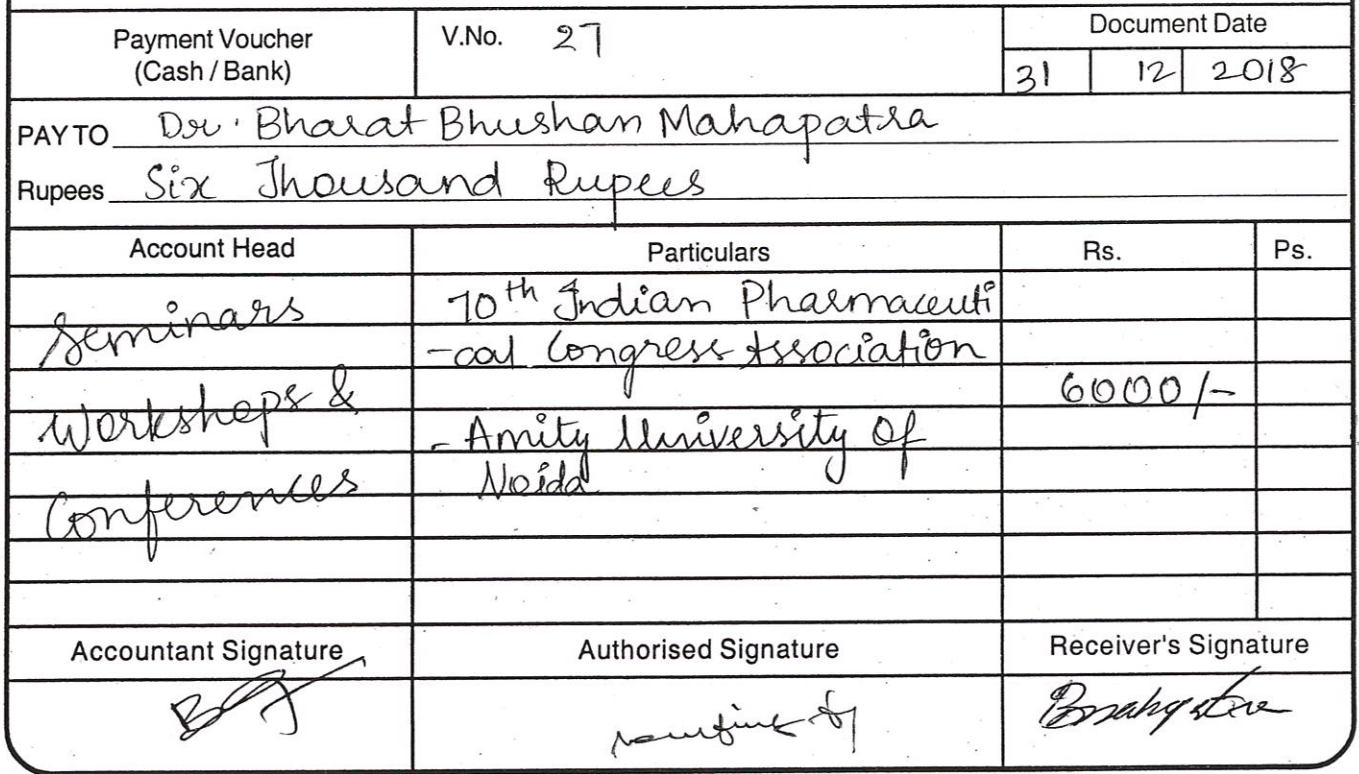 Payment Voucher
(Cash / Bank)
V.No. 27
Document Date
31 12 2018
PAY TO Dr. Bharat Bhushan Mahapatra
Rupees Six Thousand Rupees
Account Head Particulars Rs. Ps.
Seminars
Workshops &
Conferences
70th Indian Pharmaceuti
-cal Congress Association
- Amity University Of
Noida
6000/-
Accountant Signature Authorised Signature Receiver's Signature